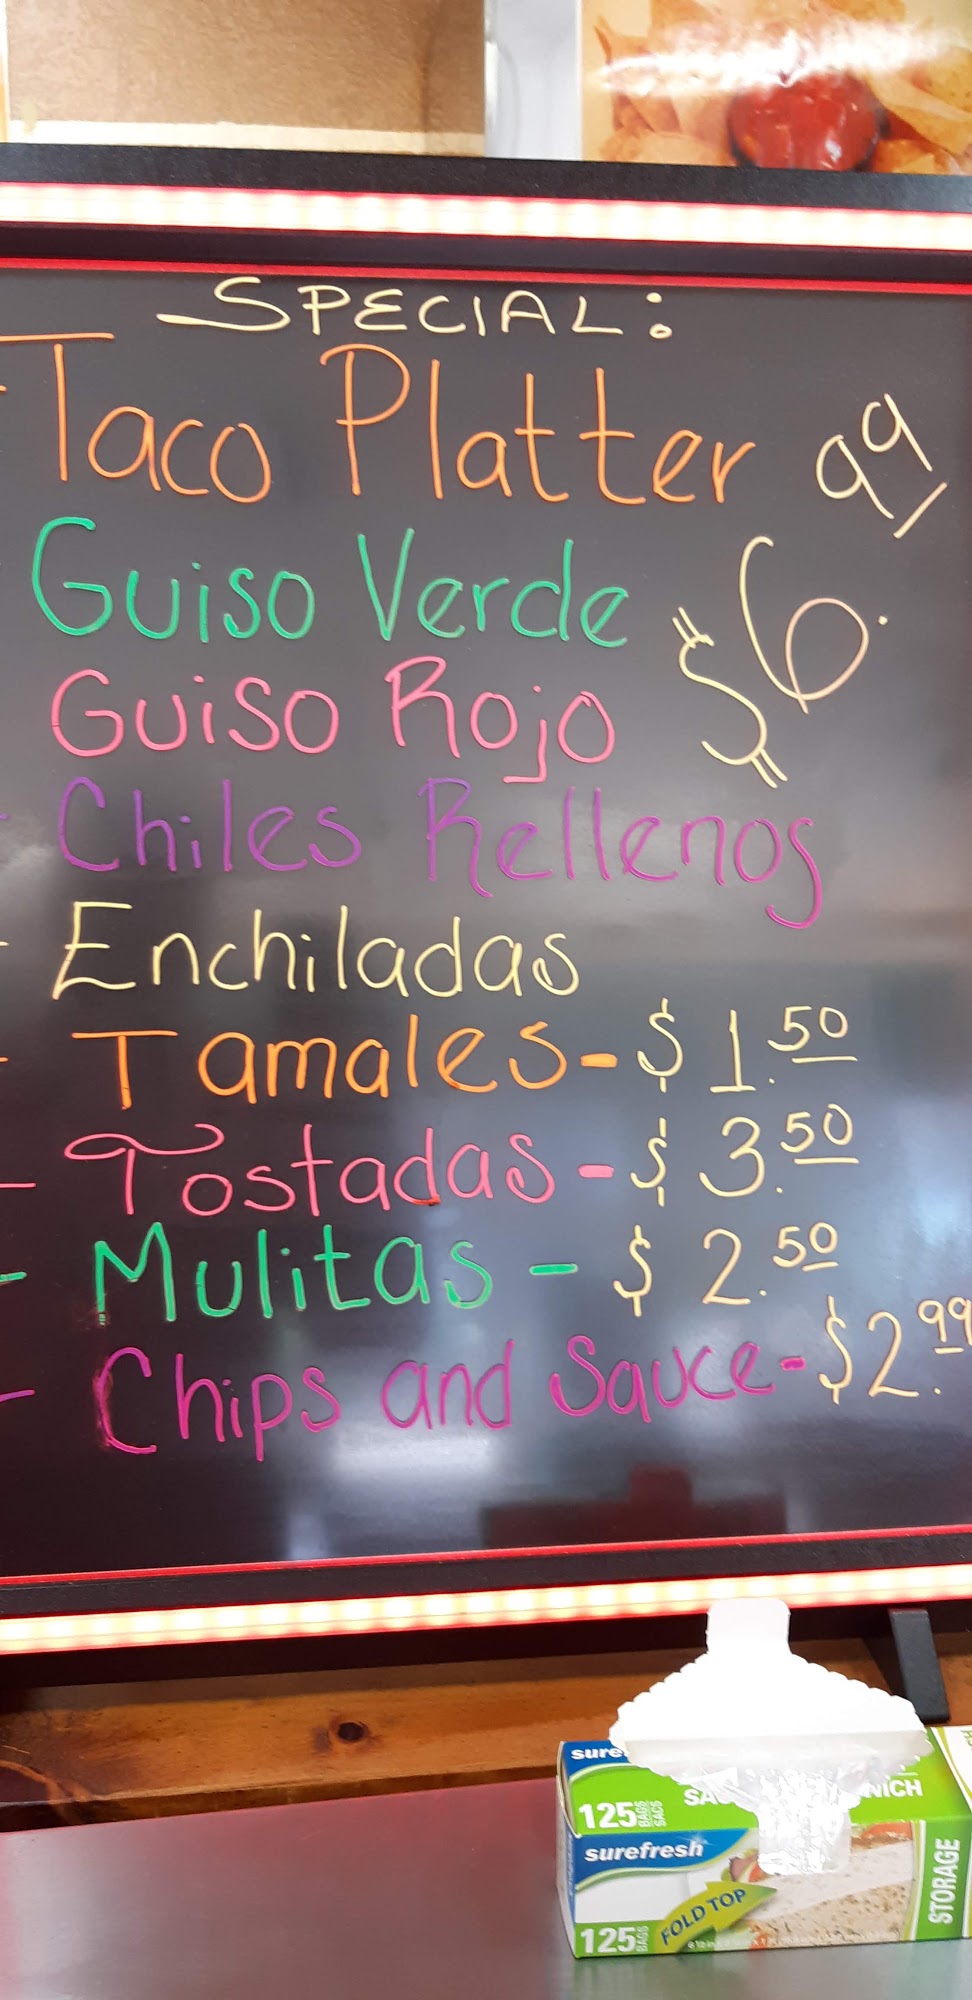 SPECIAL:
- Taco Platter
Guiso Verde $6.99
Guiso Rojo
- Chiles Rellenos
- Enchiladas
- Tamales - $1.50
- Tostadas - $3.50
- Mulitas - $2.50
- Chips and Sauce - $2.99
125 BAGS SACS
surefresh
FOLD TOP
125 BAGS
STORAGE